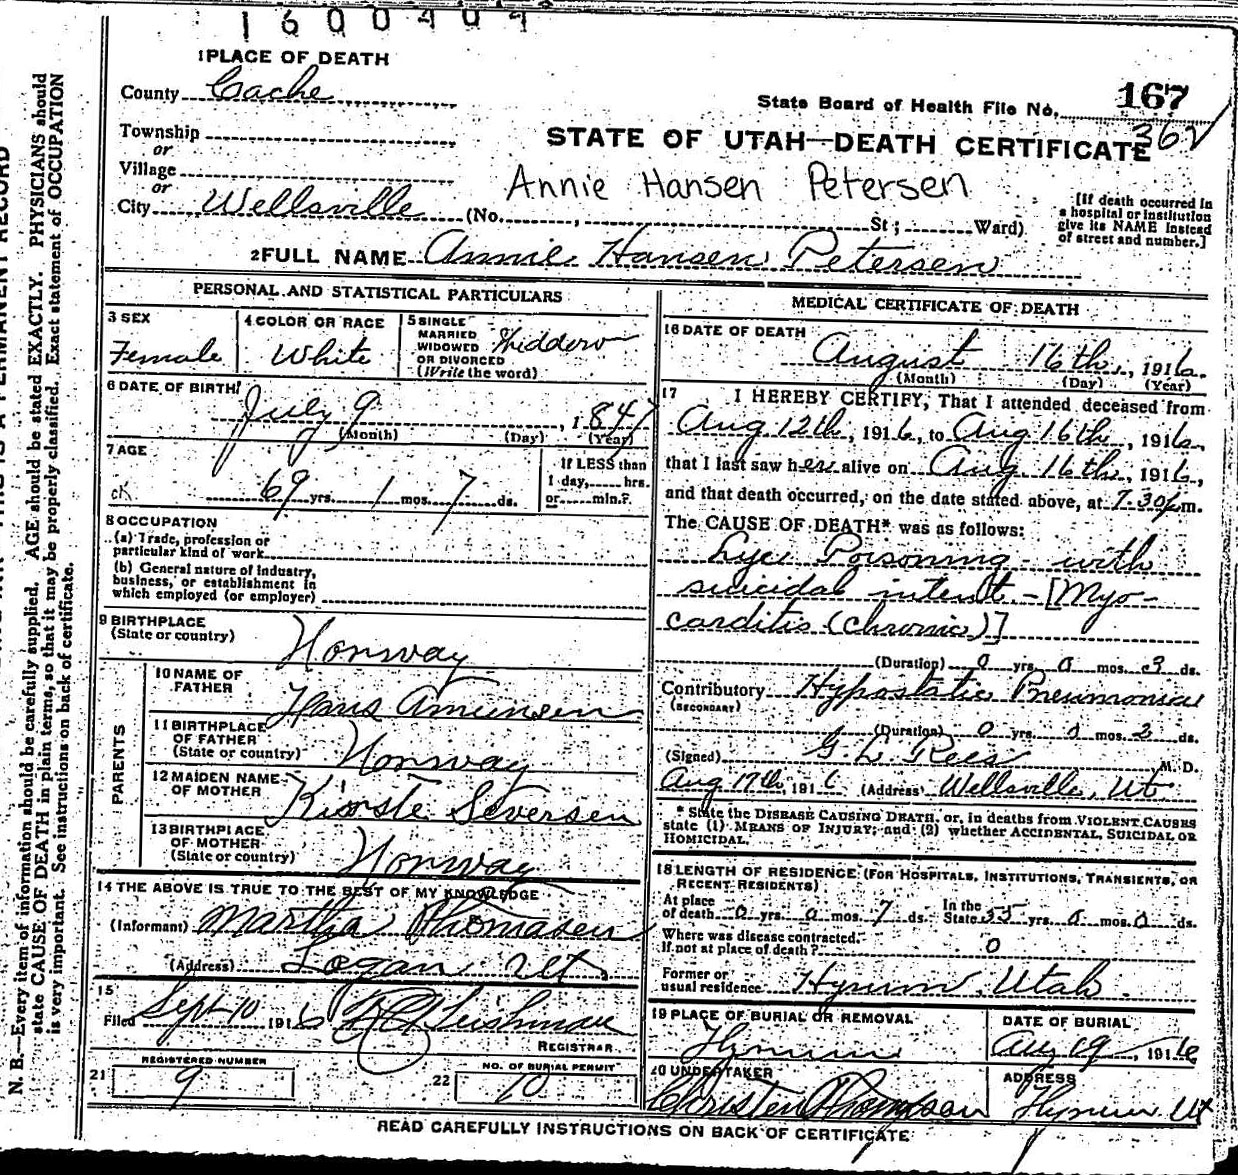 1600404
1 PLACE OF DEATH
County Cache
State Board of Health File No. 167
362
Township
or
Village
or
City Wellsville (No. , St; Ward)
STATE OF UTAH—DEATH CERTIFICATE
Annie Hansen Petersen
[If death occurred in
a hospital or institution
give its NAME instead
of street and number.]
2 FULL NAME Annie Hansen Petersen
PERSONAL AND STATISTICAL PARTICULARS
3 SEX
Female
4 COLOR OR RACE
White
5 SINGLE
MARRIED
WIDOWED
OR DIVORCED
(Write the word)
Widdow
6 DATE OF BIRTH
July 9, 1847
(Month) (Day) (Year)
7 AGE
ck 69 yrs. 1 mos. 7 ds.
If LESS than
1 day, hrs.
or min.?
8 OCCUPATION
(a) Trade, profession or
particular kind of work
(b) General nature of industry,
business, or establishment in
which employed (or employer)
9 BIRTHPLACE
(State or country)
Norway
PARENTS
10 NAME OF
FATHER
Hans Amunsen
11 BIRTHPLACE
OF FATHER
(State or country)
Norway
12 MAIDEN NAME
OF MOTHER
Severson
13 BIRTHPLACE
OF MOTHER
(State or country)
Norway
14 THE ABOVE IS TRUE TO THE BEST OF MY KNOWLEDGE
(Informant) Martha Thomasen
(Address) Logan Ut.
15
Filed Sept 10 1916 Leishman
REGISTRAR
REGISTERED NUMBER
21 9
NO. OF BURIAL PERMIT
22 10
MEDICAL CERTIFICATE OF DEATH
16 DATE OF DEATH
August 16th, 1916.
(Month) (Day) (Year)
17 I HEREBY CERTIFY, That I attended deceased from
Aug 12th, 1916, to Aug 16th, 1916,
that I last saw her alive on Aug 16th, 1916,
and that death occurred, on the date stated above, at 7.30 p m.
The CAUSE OF DEATH* was as follows:
Lye Poisoning - with
suicidal intent. - [Myo-
carditis (Chronic)]
(Duration) 0 yrs. 0 mos. 3 ds.
Contributory Hypostatic Pneumonia
(SECONDARY)
(Duration) 0 yrs. 0 mos. 2 ds.
(Signed) G. L. Rees M. D.
Aug 17th, 1916 (Address) Wellsville, Ut
* State the DISEASE CAUSING DEATH, or, in deaths from VIOLENT CAUSES
state (1) MEANS OF INJURY; and (2) whether ACCIDENTAL, SUICIDAL OR
HOMICIDAL.
18 LENGTH OF RESIDENCE (FOR HOSPITALS, INSTITUTIONS, TRANSIENTS, OR
RECENT RESIDENTS)
At place
of death 0 yrs. 0 mos. 7 ds.
In the
State 55 yrs. 0 mos. 0 ds.
Where was disease contracted.
if not at place of death? 0
Former or
usual residence Hyrum, Utah.
19 PLACE OF BURIAL OR REMOVAL
Hyrum
DATE OF BURIAL
Aug 19, 1916
20 UNDERTAKER
Christen Thompson
ADDRESS
Hyrum Ut
READ CAREFULLY INSTRUCTIONS ON BACK OF CERTIFICATE
N. B.—Every item of information should be carefully supplied. AGE should be stated EXACTLY. PHYSICIANS should
state CAUSE OF DEATH in plain terms, so that it may be properly classified. Exact statement of OCCUPATION
is very important. See instructions on back of certificate.